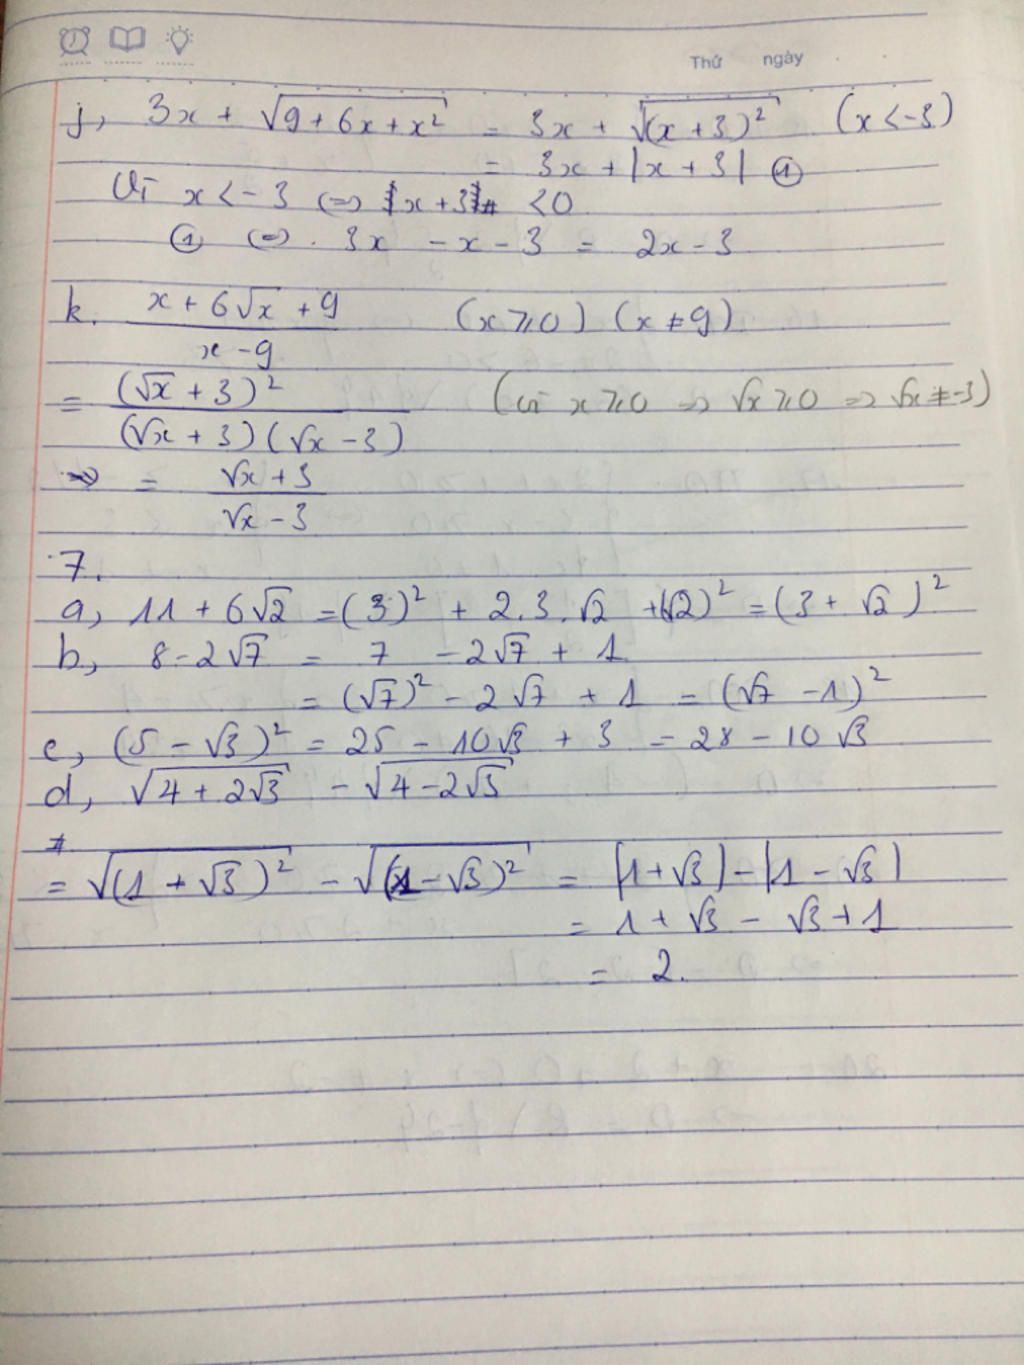 Thứ ngày
j, 3x + √(9 + 6x + x²) = 3x + √((x + 3)²) (x < -3)
= 3x + |x + 3| ①
Vì x < -3 (=) x + 3 < 0
① (=) 3x - x - 3 = 2x - 3
k. (x + 6√x + 9)/(x - 9) (x ⩾ 0) (x ≠ 9)
= (√x + 3)²/((√x + 3)(√x - 3)) (vì x ⩾ 0 => √x ⩾ 0 => √x ≠ -3)
= (√x + 3)/(√x - 3)
7.
a, 11 + 6√2 = (3)² + 2.3.√2 + (√2)² = (3 + √2)²
b, 8 - 2√7 = 7 - 2√7 + 1
= (√7)² - 2√7 + 1 = (√7 - 1)²
c, (5 - √3)² = 25 - 10√3 + 3 = 28 - 10√3
d, √(4 + 2√3) - √(4 - 2√3)
= √((1 + √3)²) - √((1 - √3)²) = |1 + √3| - |1 - √3|
= 1 + √3 - √3 + 1
= 2.